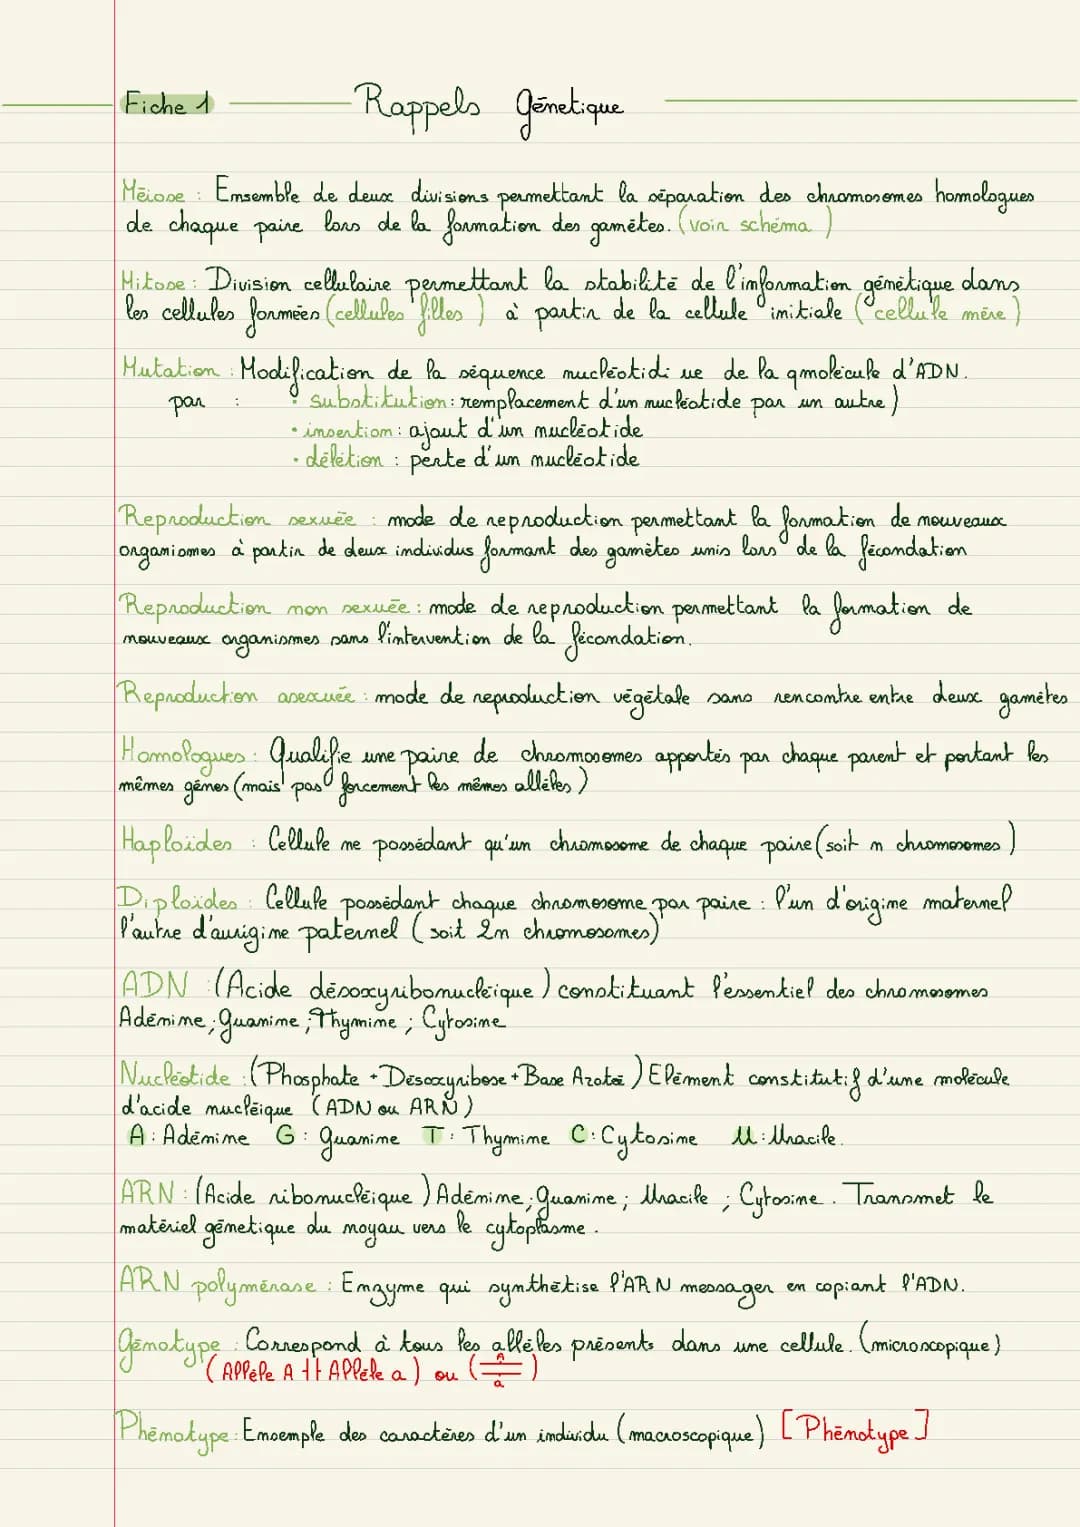 Fiche 1 Rappels Génetique
Méiose : Ensemble de deux divisions permettant la séparation des chromosomes homologues
de chaque paire lors de la formation des gamètes. (voir schéma )
Mitose : Division cellulaire permettant la stabilité de l'information génétique dans
les cellules formées (cellules filles ) à partir de la cellule initiale ( cellule mère )
Mutation : Modification de la séquence nucléotidi ue de la qmolécule d'ADN.
par : • substitution : remplacement d'un nucléotide par un autre )
• insertion : ajout d'un nucléotide
• délétion : perte d'un nucléotide
Reproduction sexuée : mode de reproduction permettant la formation de nouveaux
organismes à partir de deux individus formant des gamètes unis lors de la fécondation
Reproduction non sexuée : mode de reproduction permettant la formation de
nouveaux organismes sans l'intervention de la fécondation.
Reproduction asexuée : mode de reproduction végétale sans rencontre entre deux gamètes
Homologues : Qualifie une paire de chromosomes apportés par chaque parent et portant les
mêmes gènes (mais pas forcement les mêmes allèles )
Haploïdes : Cellule ne possédant qu'un chromosome de chaque paire (soit n chromosomes )
Diploïdes : Cellule possédant chaque chromosome par paire : l'un d'origine maternel
l'autre d'aurigine paternel ( soit 2n chromosomes)
ADN : (Acide désoxyribonucléique ) constituant l'essentiel des chromosomes
Adénine ; Guanine ; Thymine ; Cytosine
Nucléotide : (Phosphate + Désoxyribose + Base Azotée ) Elément constitutif d'une molécule
d'acide nucléique (ADN ou ARN )
A : Adénine G : Guanine T : Thymine C : Cytosine U : Uracile.
ARN : (Acide ribonucléique ) Adénine ; Guanine ; Uracile ; Cytosine . Transmet le
matériel génetique du noyau vers le cytoplasme .
ARN polymérase : Enzyme qui synthétise l'ARN messager en copiant l'ADN.
Génotype : Correspond à tous les allèles présents dans une cellule. (microscopique)
( Allèle A †† Allèle a ) ou ( A/a )
Phénotype : Ensemple des caractères d'un individu (macroscopique) [ Phénotype ]